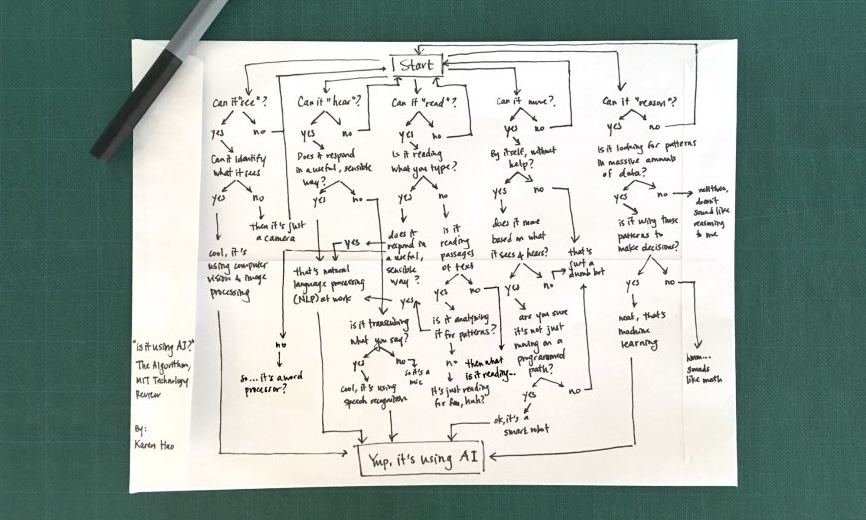 Start
Can it "see"?
yes
no
Can it identify
what it sees
yes
no
then it's just
a camera
cool, it's
using computer
vision & image
processing
Can it "hear"?
yes
no
Does it respond
in a useful, sensible
way?
yes
no
that's natural
language processing
(NLP) at work
is it transcribing
what you say?
yes
no
so it's a
mic
cool, it's using
speech recognition
Can it "read"?
yes
no
Is it reading
what you type?
yes
no
does it
respond in
a useful,
sensible
way?
yes
no
so... it's a word
processor?
is it
reading
passages
of text
yes
no
then what
is it reading...
is it analyzing
it for patterns?
yes
no
It's just reading
for fun, huh?
Can it move?
yes
no
By itself, without
help?
yes
no
that's
just a
dumb bot
does it move
based on what
it sees & hears?
yes
no
are you sure
it's not just
running on a
programmed
path?
yes
no
ok, it's a
smart robot
Can it "reason"?
yes
no
Is it looking for patterns
in massive amounts
of data?
yes
no
well then,
doesn't
sound like
reasoning
to me
is it using those
patterns to
make decisions?
yes
no
neat, that's
machine
learning
hmm...
sounds
like math
Yup, it's using AI
"Is it using AI?"
The Algorithm,
MIT Technology
Review
By:
Karen Hao